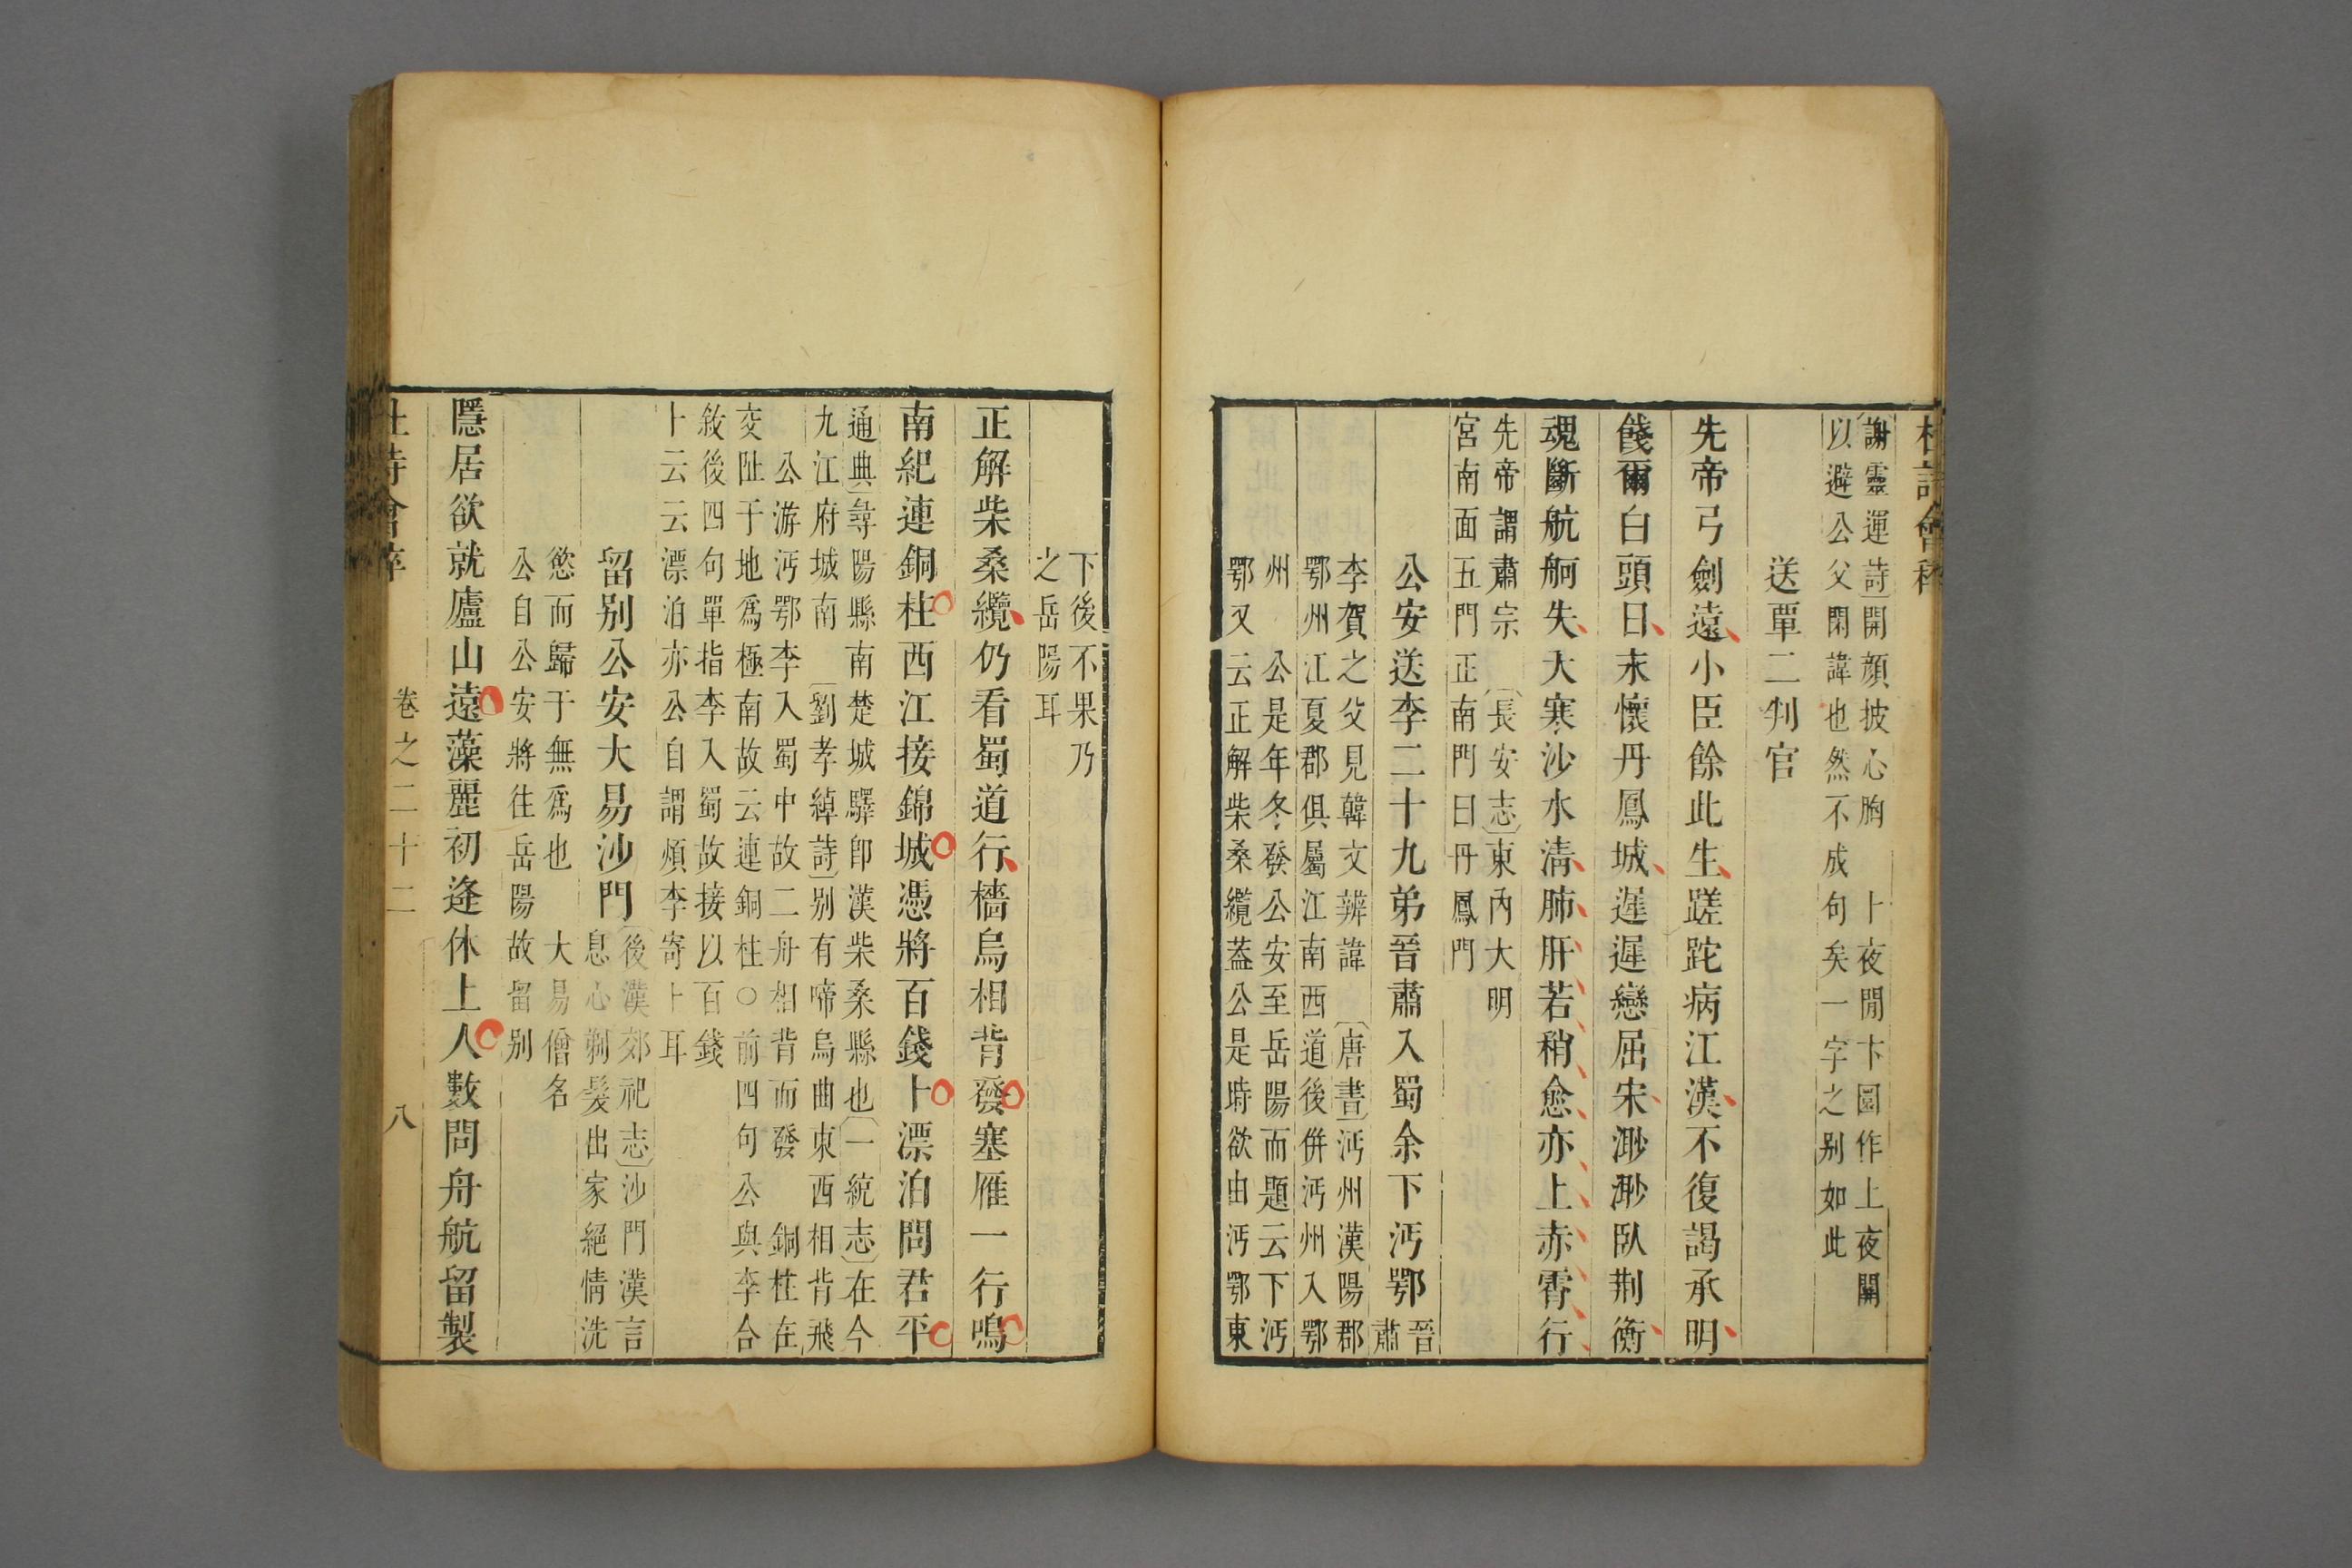 杜詩會稡
謝靈運詩開顔披心胸　卜夜閒卞圜作上夜關
以避公父閑諱也然不成句矣一字之别如此
送覃二判官
先帝弓劍遠小臣餘此生蹉跎病江漢不復謁承明
餞爾白頭日永懷丹鳳城遲遲戀屈宋渺渺臥荆衡
魂斷航舸失天寒沙水清肺肝若稍愈亦上赤霄行
先帝謂肅宗　長安志東内大明
宮南面五門正南門曰丹鳳門
公安送李二十九弟晉肅入蜀余下沔鄂
晉
肅
李賀之父見韓文辨諱　唐書沔州漢陽郡
鄂州江夏郡俱屬江南西道後併沔州入鄂
州　公是年冬發公安至岳陽而題云下沔
鄂又云正解柴桑纜蓋公是時欲由沔鄂東
下後不果乃
之岳陽耳
正解柴桑纜仍看蜀道行檣烏相背發塞雁一行鳴
南紀連銅柱西江接錦城憑將百錢卜漂泊問君平
通典尋陽縣南楚城驛即漢柴桑縣也一統志在今
九江府城南　劉孝綽詩别有啼烏曲東西相背飛
公游沔鄂李入蜀中故二舟相背而發　銅柱在
交阯于地爲極南故云連銅柱○前四句公與李合
敘後四句單指李入蜀故接以百錢
卜云云漂泊亦公自謂煩李寄卜耳
留别公安大易沙門
後漢郊祀志沙門漢言
息心剃髮出家絕情洗
慾而歸于無爲也　大易僧名
公自公安將往岳陽故留别
隱居欲就廬山遠藻麗初逢休上人數問舟航留製
杜詩會稡
卷之二十二
八